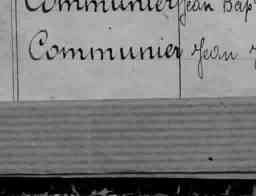 Communier Jean Bap
Communier Jean